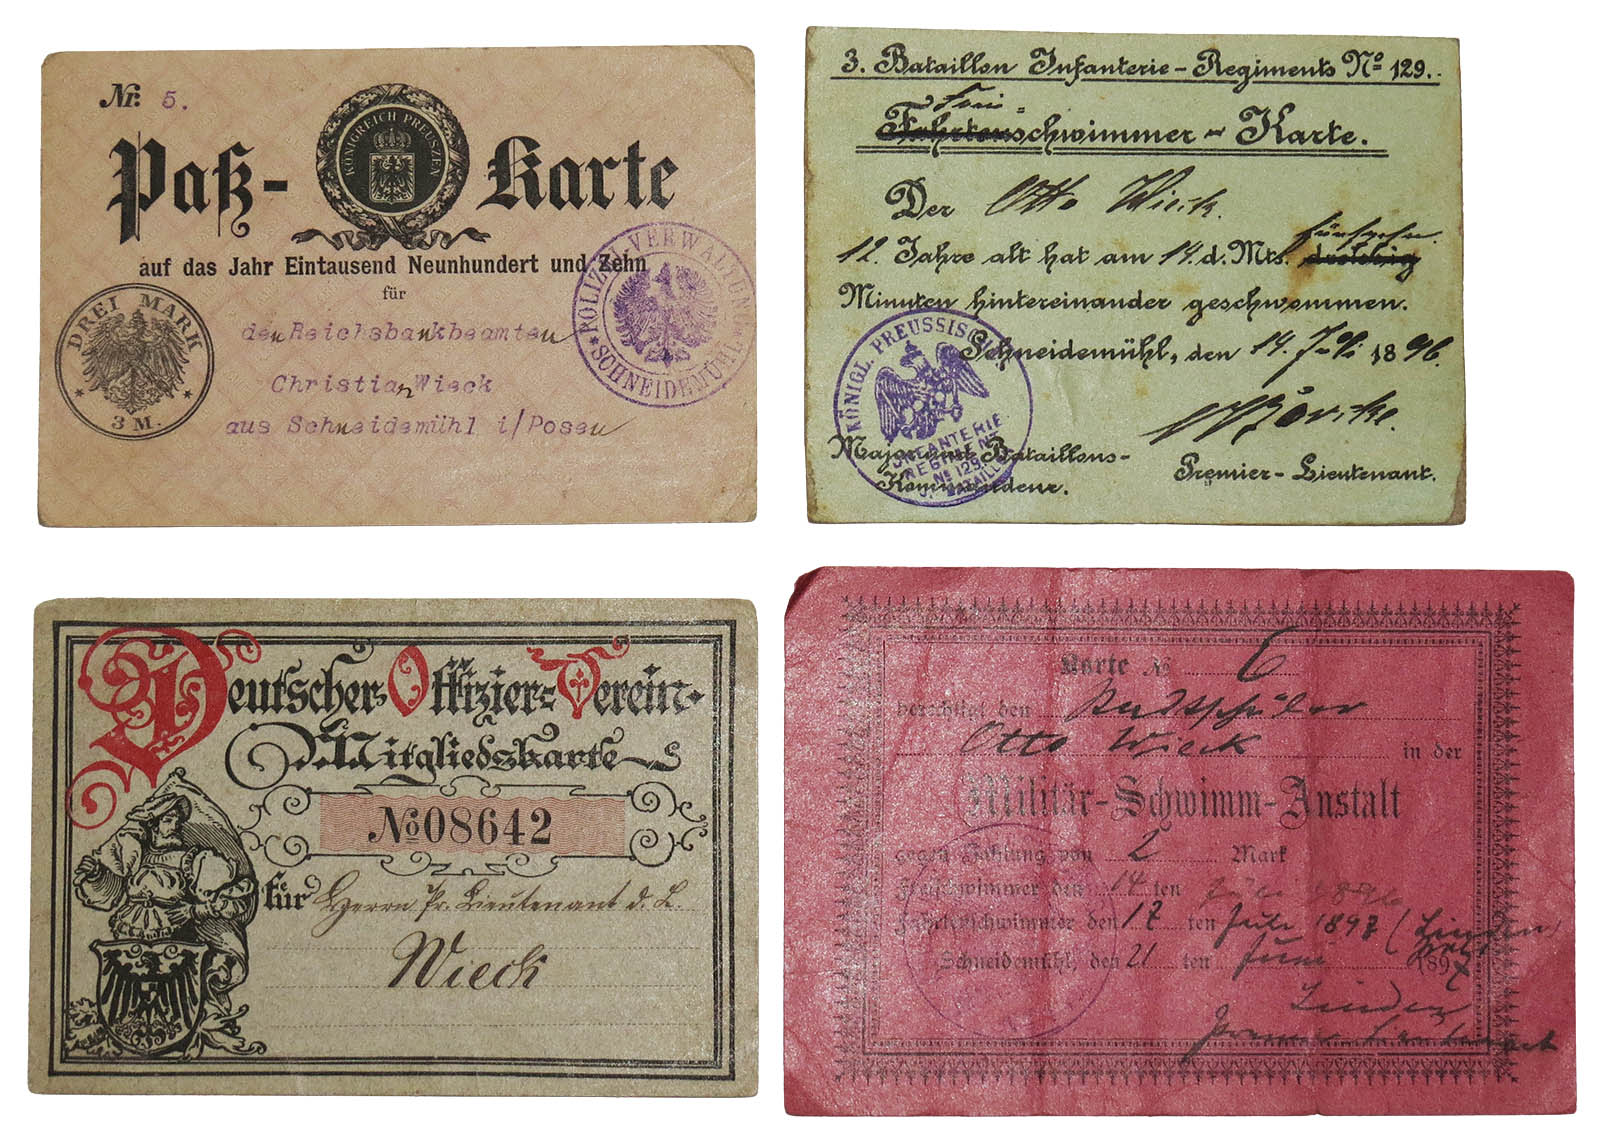 Nr. 5.
Paß-Karte
KÖNIGREICH PREUSZEN
auf das Jahr Eintausend Neunhundert und Zehn
für
den Reichsbankbeamten
Christian Wieck
aus Schneidemühl i/Posen
DREI MARK
3 M.
POLIZEI-VERWALTUNG
SCHNEIDEMÜHL
3. Bataillon Infanterie-Regiments No 129.
Frei=
Fahrtenschwimmer-Karte.
Der Otto Wieck
fünfzehn
12 Jahre alt hat am 14. d. Mts. dreißig
Minuten hintereinander geschwommen.
Schneidemühl, den 14. 7. 1896.
Major und Bataillons-
Kommandeur.
Premier-Lieutenant.
KÖNIGL. PREUSSISCH
INFANTERIE
REGIMENT
No 129
BATAILL
Deutscher Offizier-Verein.
Mitgliedskarte
No 08642
für Herrn Pr. Lieutenant d. L.
Wieck
Karte No 6
berechtigt den Badschüler
Otto Wieck in der
Militär-Schwimm-Anstalt
gegen Zahlung von 2 Mark
Freischwimmer den 14 ten Juli 1896
Fahrtenschwimmer den 17 ten Juli 1897 (Linden
Schneidemühl, den 21 ten Juni 1897
Linden
Premier-Lieutenant